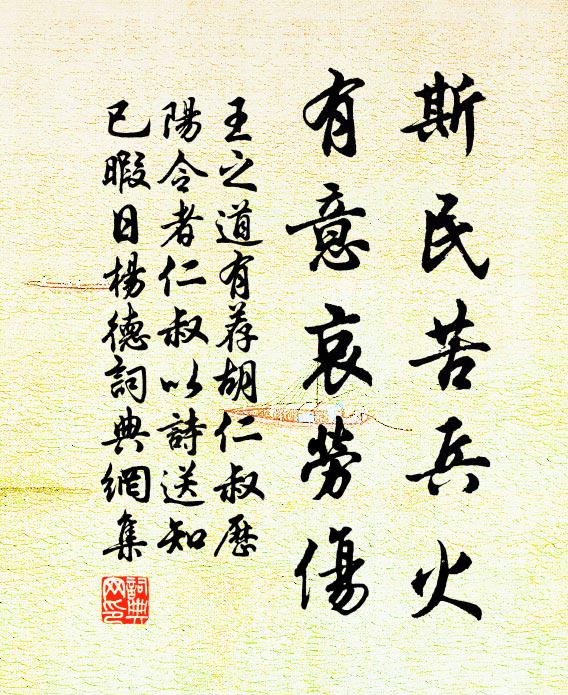 斯民苦兵火
有意哀勞傷
王之道有荐胡仁叔歷
陽令者仁叔以詩送知
已暇日楊德詞典網集
詞典网印